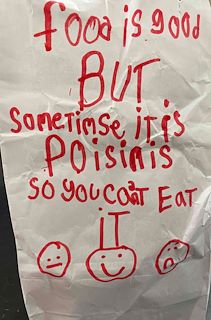 food is good
BUT
sometimse it is
Poisinis
so you coat Eat
iT